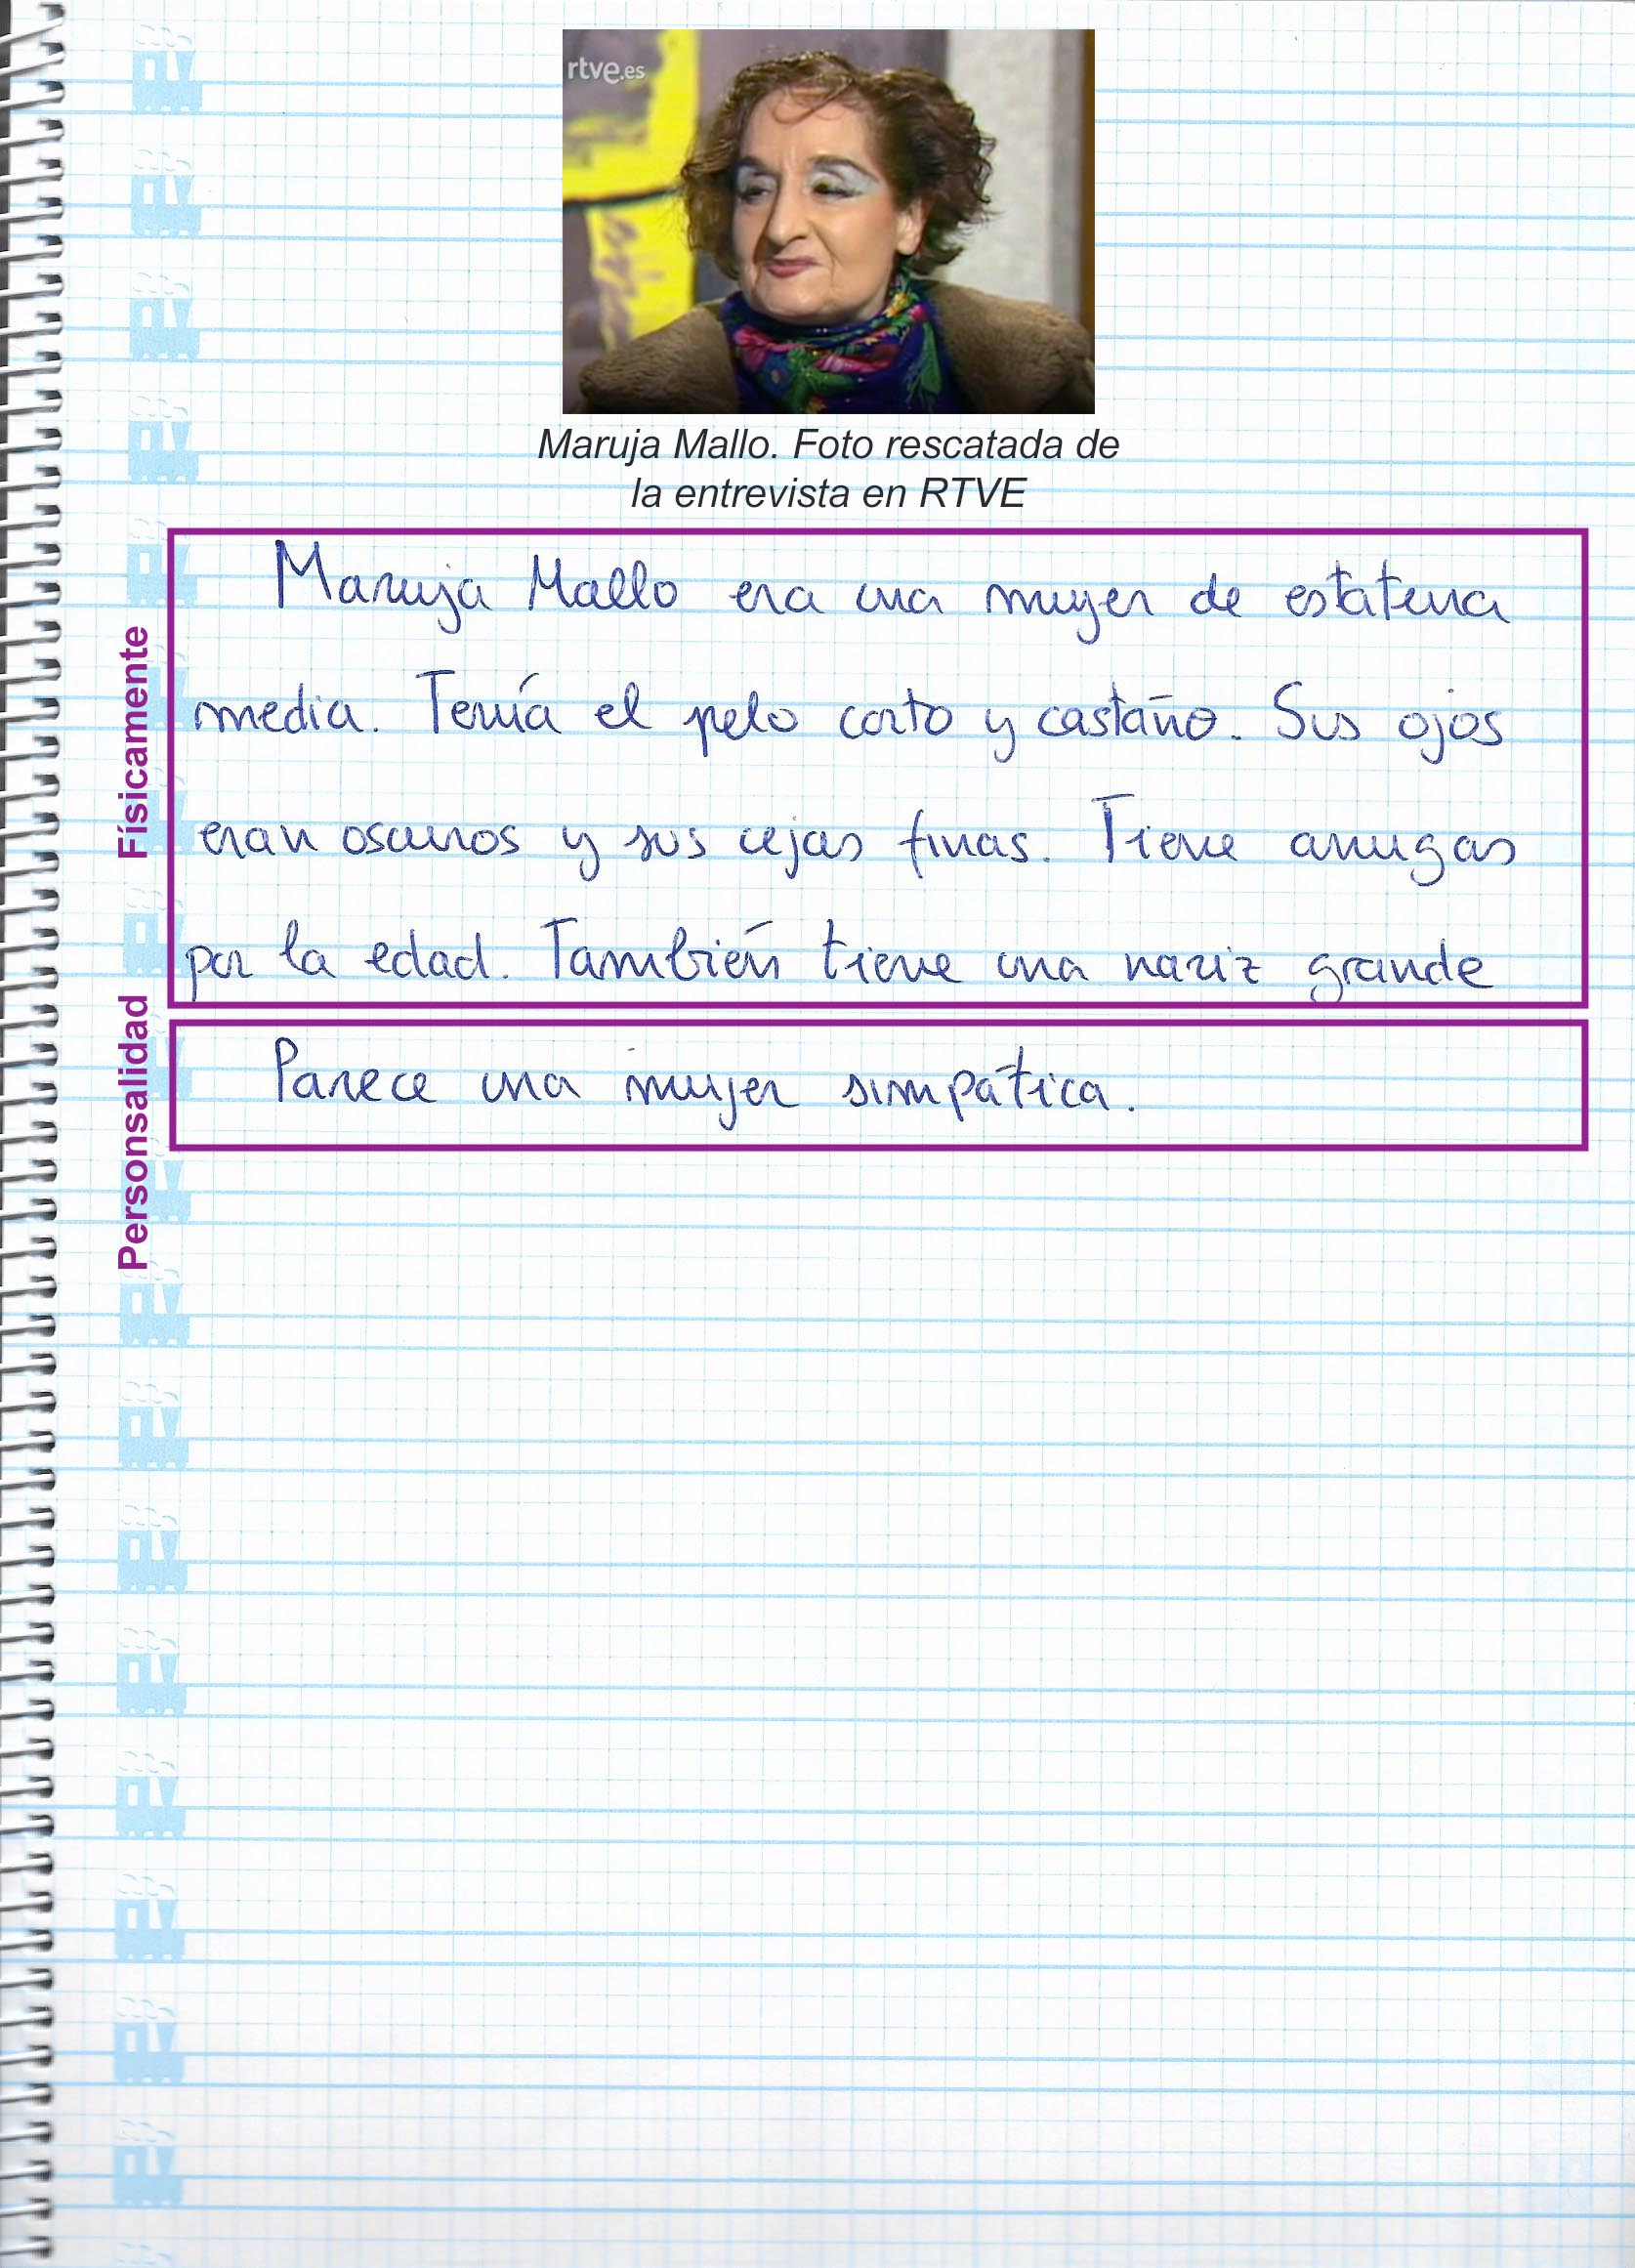 rtve.es
Maruja Mallo. Foto rescatada de
la entrevista en RTVE
Maruja Mallo era una mujer de estatura
media. Tenía el pelo corto y castaño. Sus ojos
eran oscuros y sus cejas finas. Tiene arrugas
por la edad. También tiene una nariz grande
Físicamente
Parece una mujer simpática.
Personsalidad